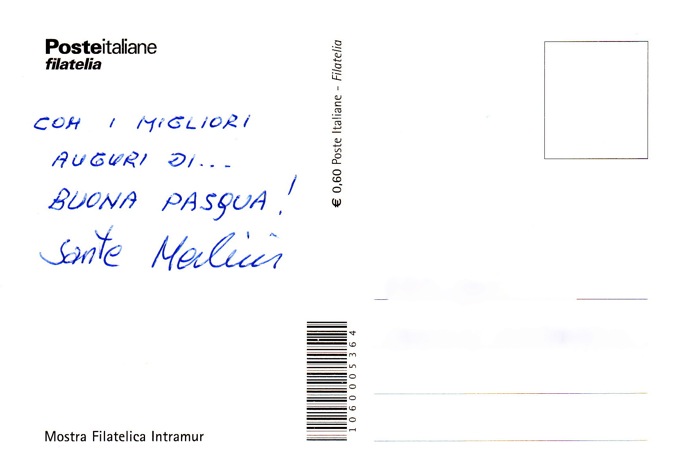 Posteitaliane
filatelia
CON I MIGLIORI
AUGURI DI...
BUONA PASQUA!
Sante
€ 0,60 Poste Italiane - Filatelia
1060005364
Mostra Filatelica Intramur